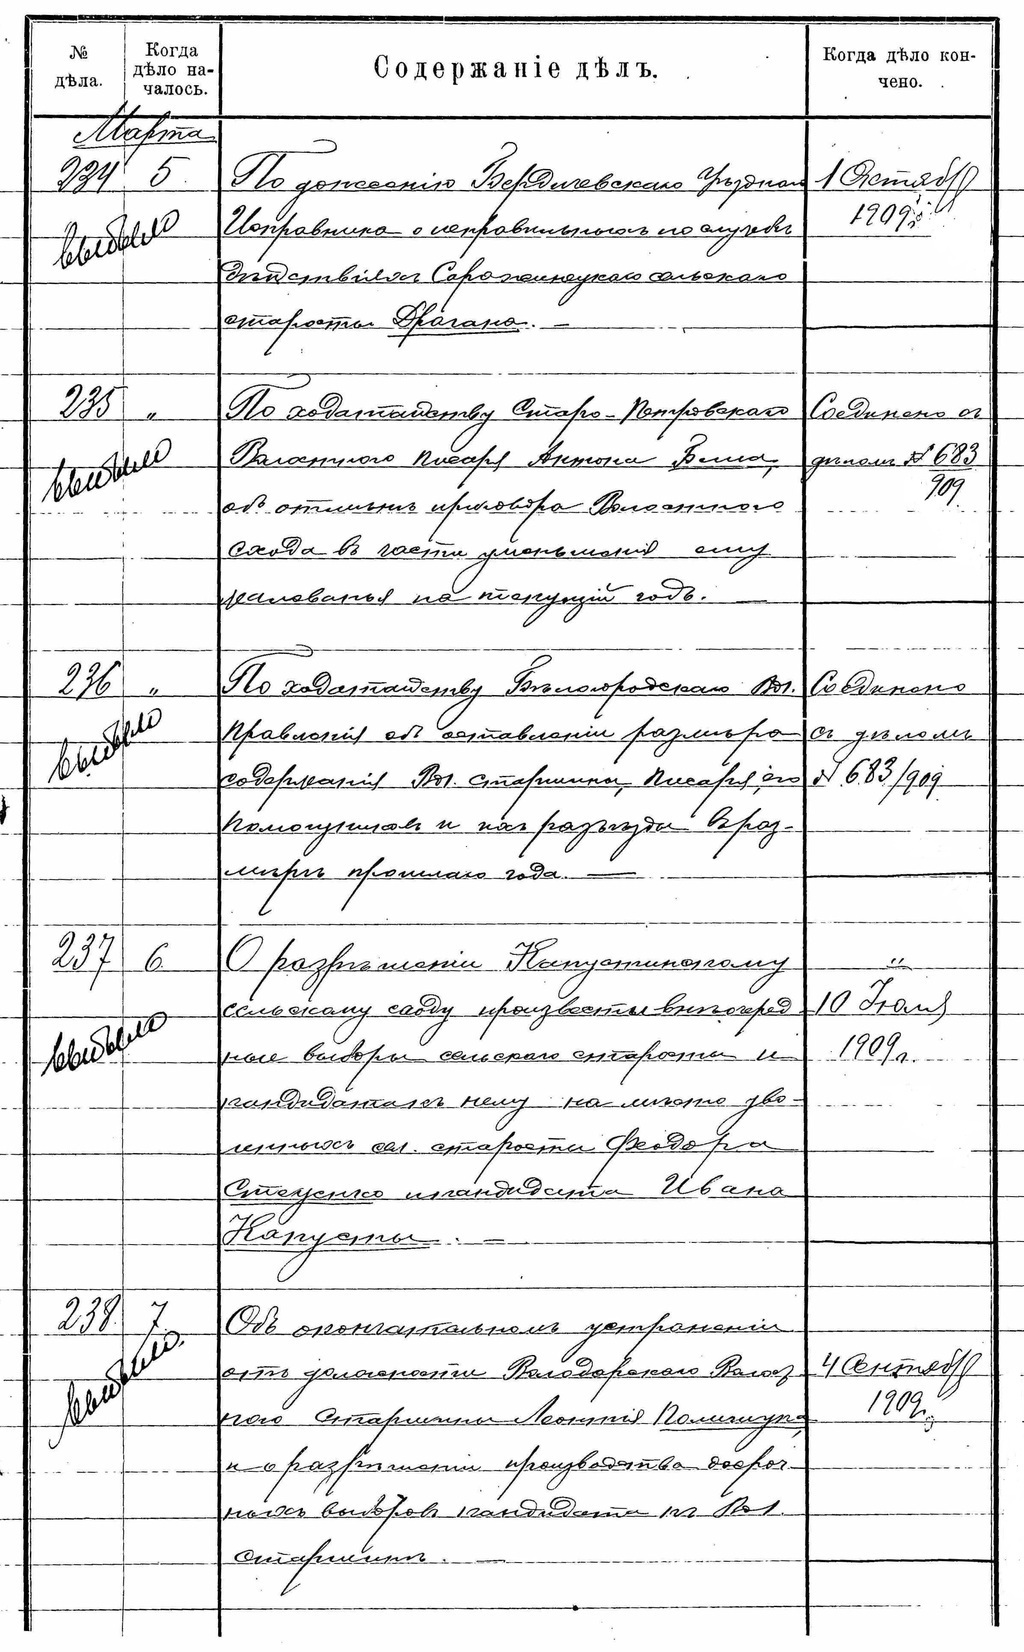 № дѣла.
Когда дѣло на-
чалось.
Содержаніе дѣлъ.
Когда дѣло кон-
чено.
Марта
234 5. По донесенію Бердичевскаго Уѣзднаго 1 Октября
выбыло Исправника о неправильныхъ по службѣ 1909 г.
дѣйствіяхъ сельскаго
старосты Драгана. —
235 „ По ходатайству Старо-Петровскаго Соединено съ
выбыло Волостного Писаря Антона дѣломъ № 683
объ отмѣнѣ приговора Волостного 909
схода въ части уменьшенія ему
жалованья на текущій годъ. —
236 „ По ходатайству Бѣлогородскаго Вол. Соединено
выбыло Правленія объ оставленіи размѣра съ дѣломъ
содержанія Вол. старшины, Писаря, его № 683/909
Помощникамъ и на разъѣзды въ раз-
мѣрѣ прошлаго года. —
237 6 О разрѣшеніи Капустинскому „
выбыло сельскому сходу произвести внѣочеред 10 Іюля
ные выборы сельскаго старосты и 1909 г.
кандидата къ нему на мѣсто уво-
ленныхъ сел. старосты Феодора
Стеценко и кандидата Ивана
Капусты. —
238. 7. Объ окончательномъ устраненіи
выбыло. отъ должности Володарскаго Волост 4 Сентября
ного Старшины Леонтія Полищука, 1909 г.
и о разрѣшеніи производства досроч
ныхъ выборовъ кандидата къ Вол.
Старшинѣ. —